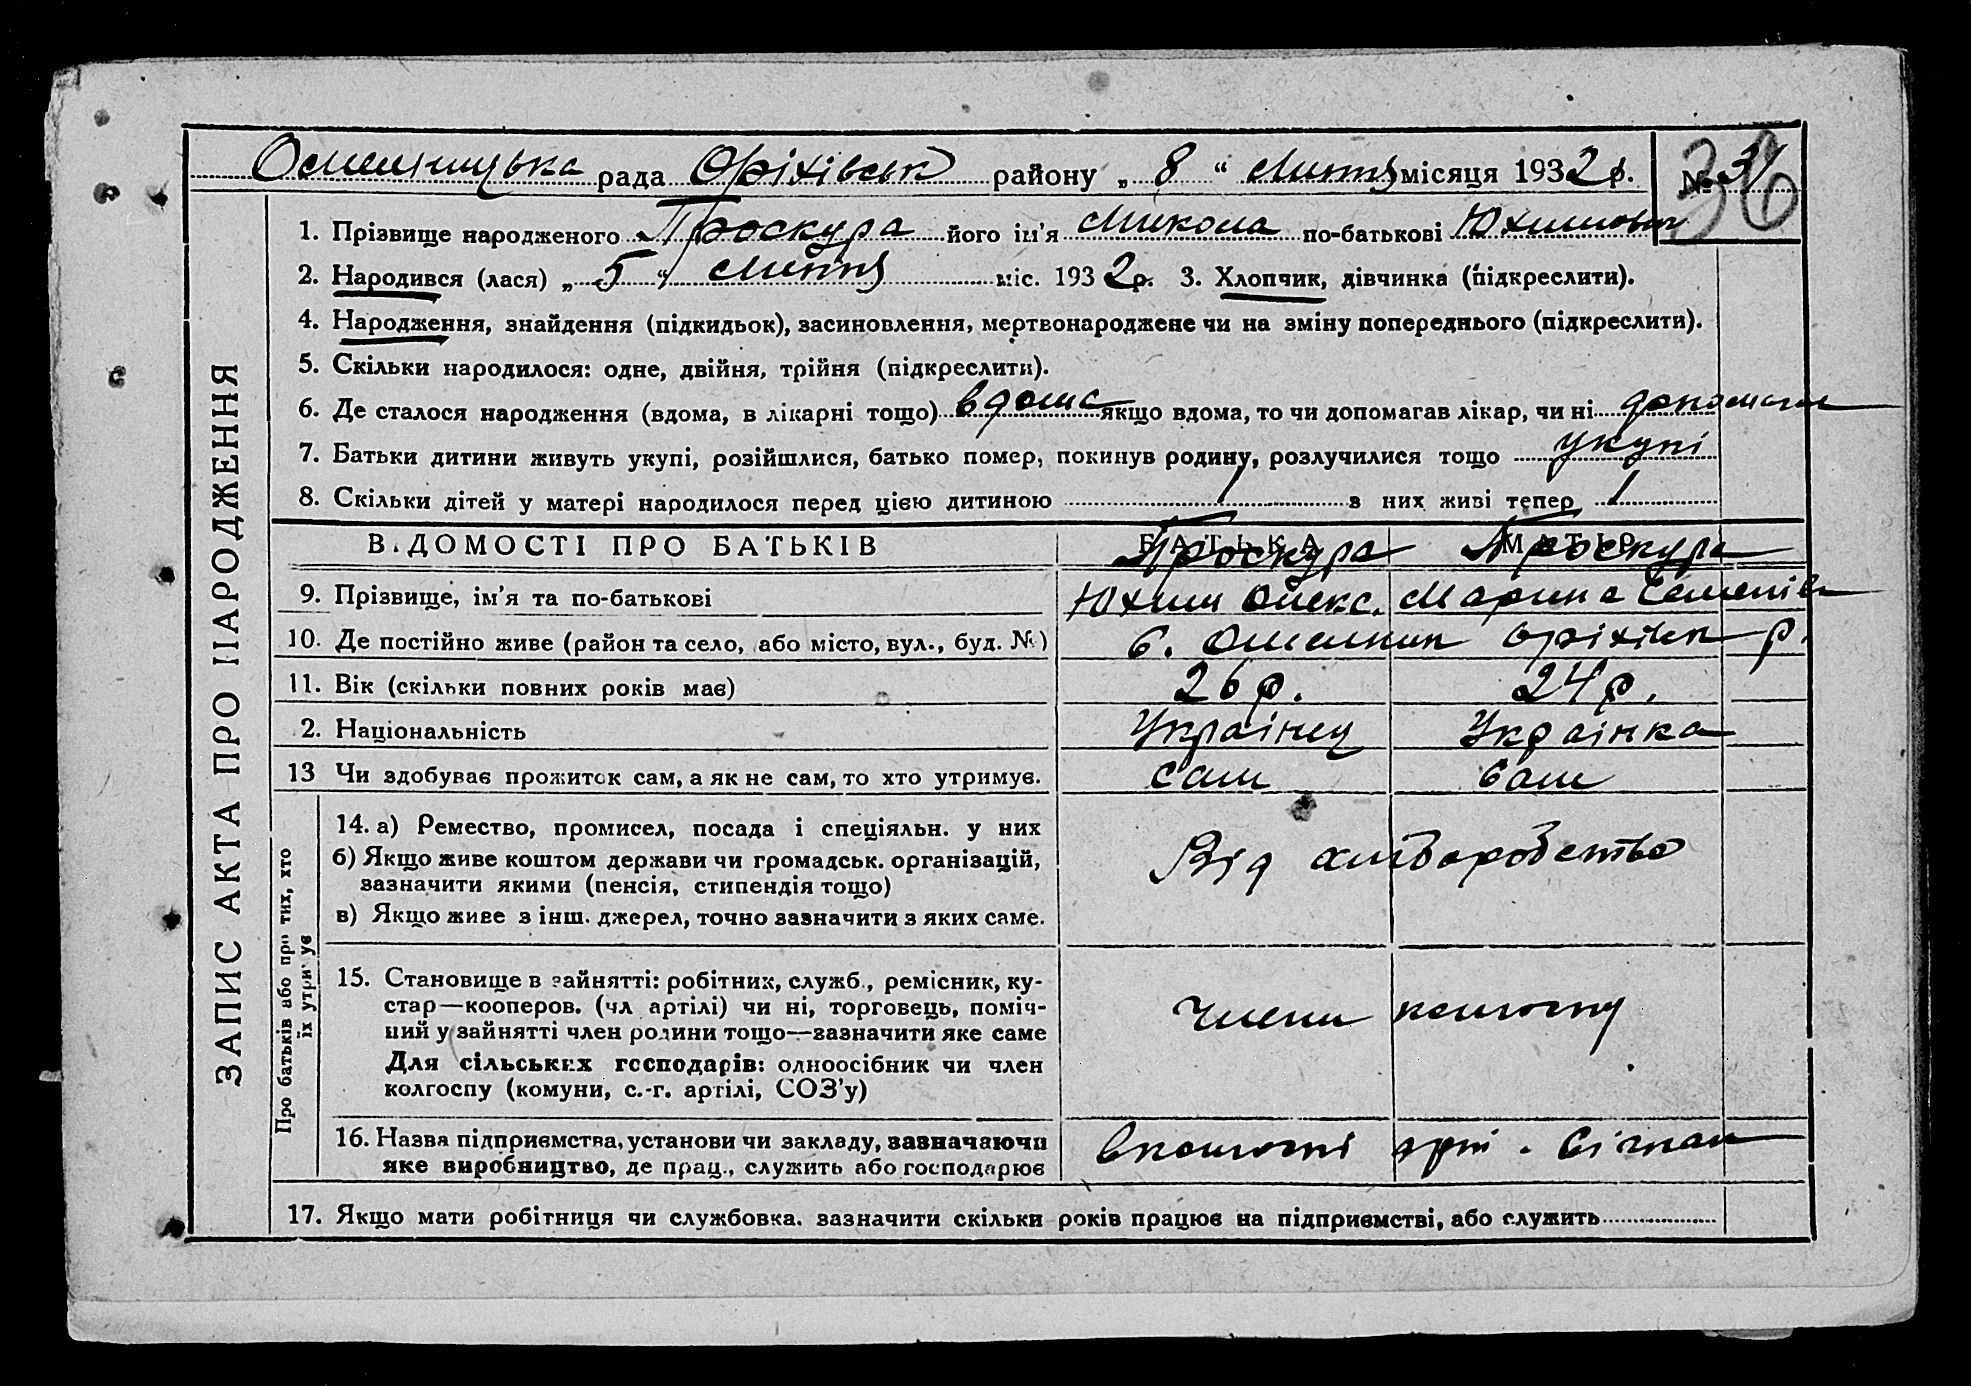 рада Оріхівськ району „ 8 “ лютця місяця 1932 р. № 31
36
1. Прізвище народженого Проскура його ім’я Микола по-батькові Юхимович
2. Народився (лася) „ 5 “ лютня міс. 1932 р. 3. Хлопчик, дівчинка (підкреслити).
4. Народження, знайдення (підкидьок), засиновлення, мертвонароджене чи на зміну попереднього (підкреслити).
5. Скільки народилося: одне, двійня, трійня (підкреслити).
6. Де сталося народження (вдома, в лікарні тощо) вдома якщо вдома, то чи допомагав лікар, чи ні
7. Батьки дитини живуть укупі, розійшлися, батько помер, покинув родину, розлучилися тощо укупі
8. Скільки дітей у матері народилося перед цією дитиною 1 з них живі тепер 1
ЗАПИС АКТА ПРО НАРОДЖЕННЯ
ВІДОМОСТІ ПРО БАТЬКІВ БАТЬКА МАТІР
Проскура Проскура
9. Прізвище, ім’я та по-батькові Юхим Олекс. Марина Семенів
10. Де постійно живе (район та село, або місто, вул., буд. №) с. Омельник Оріхівськ р.
11. Вік (скільки повних років має) 26 р. 24 р.
2. Національність Українец Українка
13 Чи здобуває прожиток сам, а як не сам, то хто утримує. сам сам
Про батьків або про тих, хто їх утримує
14. а) Ремество, промисел, посада і спеціяльн. у них
б) Якщо живе коштом держави чи громадськ. організацій,
зазначити якими (пенсія, стипендія тощо)
Від хліборобства
в) Якщо живе з інш. джерел, точно зазначити з яких саме.
15. Становище в зайнятті: робітник, служб., ремісник, ку-
стар—кооперов. (чл артілі) чи ні, торговець, поміч-
ний у зайнятті член родини тощо—зазначити яке саме
Члени колгоспу
Для сільських господарів: одноосібник чи член
колгоспу (комуни, с.-г. артілі, СОЗ’у)
16. Назва підприємства, установи чи закладу, зазначаючи
яке виробництво, де прац., служить або господарює
17. Якщо мати робітниця чи службовка. зазначити скільки років працює на підприємстві, або служить